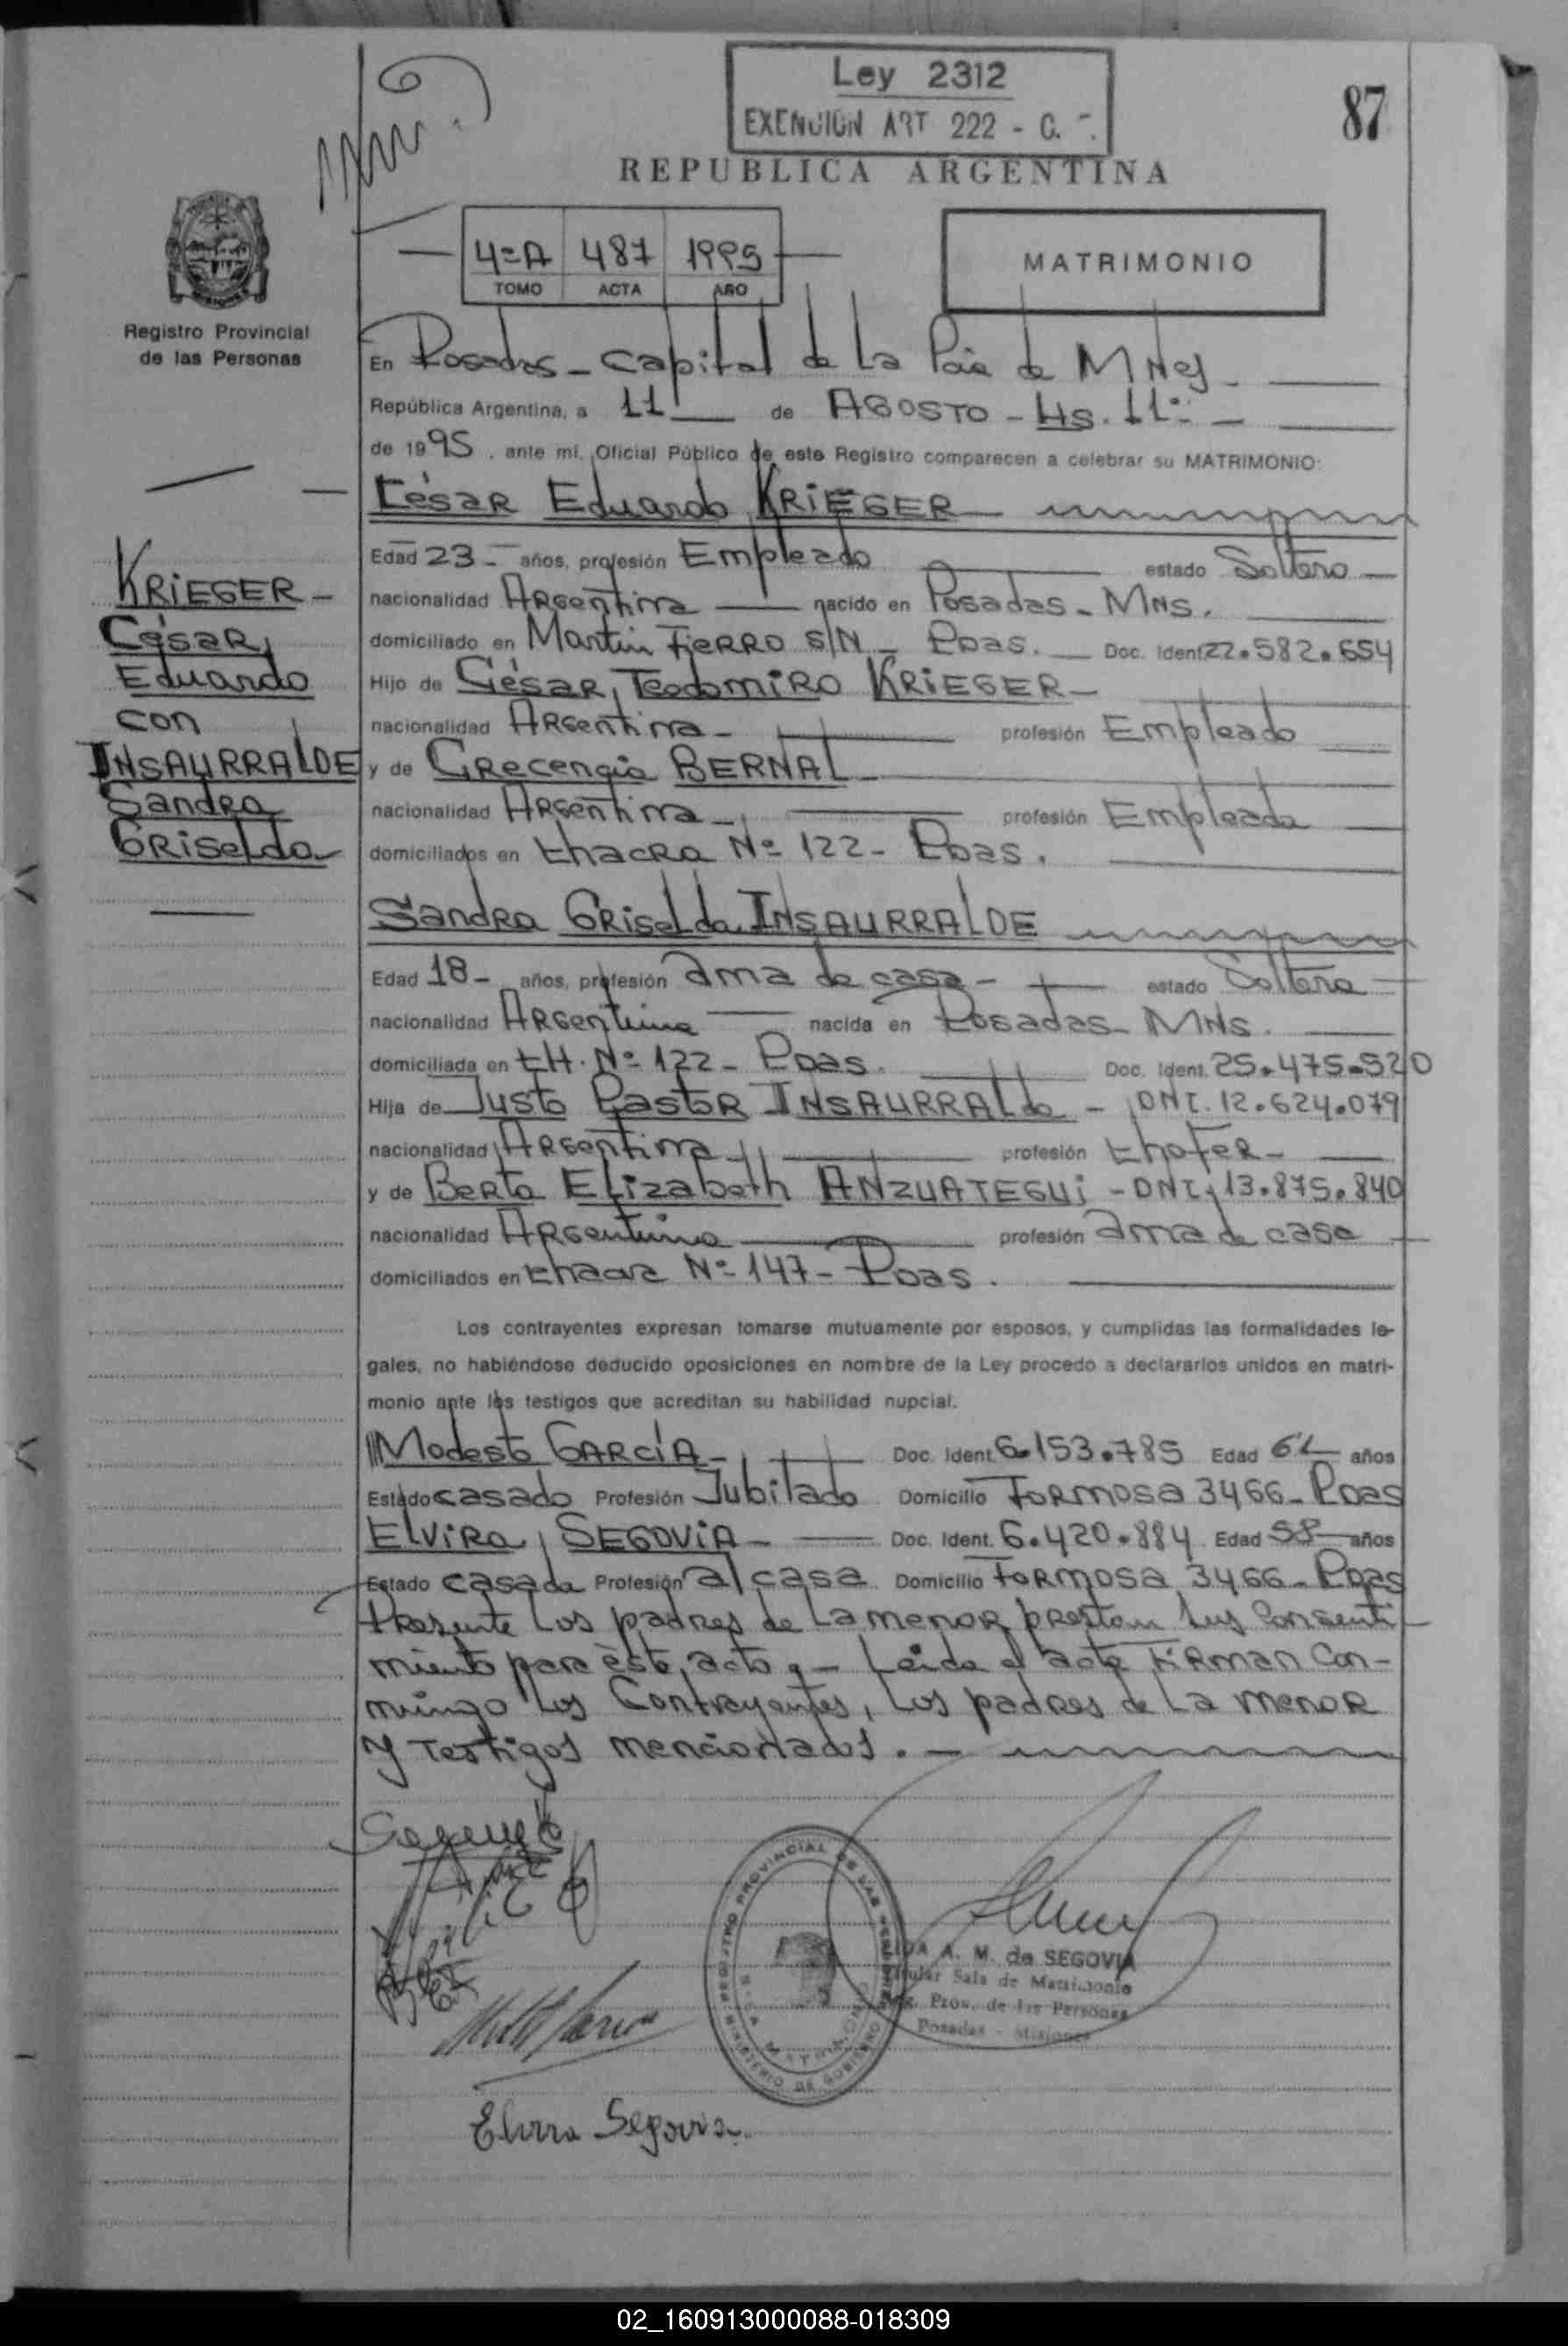 Ley 2312
EXENCION ART 222 - C.
87
REPUBLICA ARGENTINA
4=A 487 1995
TOMO ACTA AÑO
MATRIMONIO
Registro Provincial
de las Personas
En Posadas - Capital de La Pcia de MNes -
República Argentina, a 11 de AGOSTO - Hs. 11
de 1995, ante mí, Oficial Público de este Registro comparecen a celebrar su MATRIMONIO:
César Eduardo KRIEGER
Edad 23 - años, profesión Empleado estado Soltero
nacionalidad Argentina nacido en Posadas - MNS.
domiciliado en Martín FIERRO S/N - Pdas. Doc. Ident 22.582.654
Hijo de César Teodomiro KRIEGER -
nacionalidad Argentina - profesión Empleado
y de Crecencia BERNAL
nacionalidad Argentina - profesión Empleada
domiciliados en Chacra Nº 122 - Pdas.
KRIEGER -
César
Eduardo
con
INSAURRALDE
Sandra
Griselda
Sandra Griselda INSAURRALDE
Edad 18 - años, profesión ama de casa - estado Soltera
nacionalidad Argentina nacida en Posadas - MNS.
domiciliada en CH. Nº 122 - Pdas. Doc. Ident. 25.475.520
Hija de Justo Pastor INSAURRALde - DNI. 12.624.079
nacionalidad Argentina profesión Chofer -
y de Berta Elizabeth ANZUATEGUI - DNI. 13.875.840
nacionalidad Argentina profesión ama de casa
domiciliados en Chacra Nº 147 - Pdas.
Los contrayentes expresan tomarse mutuamente por esposos, y cumplidas las formalidades le-
gales, no habiéndose deducido oposiciones en nombre de la Ley procedo a declararlos unidos en matri-
monio ante los testigos que acreditan su habilidad nupcial.
Modesto GARCÍA - Doc. Ident. 6.153.785 Edad años
Estado casado Profesión Jubilado Domicilio Formosa 3466 - Pdas
Elvira SEGOVIA - Doc. Ident. 6.420.884 Edad 58 años
Estado casada Profesión a/casa Domicilio Formosa 3466 - Pdas
Presente Los padres de La menor prestan sus Consenti
miento para éste acto . - Leída el acta Firman Con-
migo Los Contrayentes, Los padres de La menor
y Testigos mencionados . -
REGISTRO PROVINCIAL DE LAS PERSONAS
MINISTERIO DE GOBIERNO
A. M. de SEGOVIA
Titular Sala de Matrimonio
Reg. Prov. de las Personas
Posadas - Misiones
Elvira Segovia
02_160913000088-018309